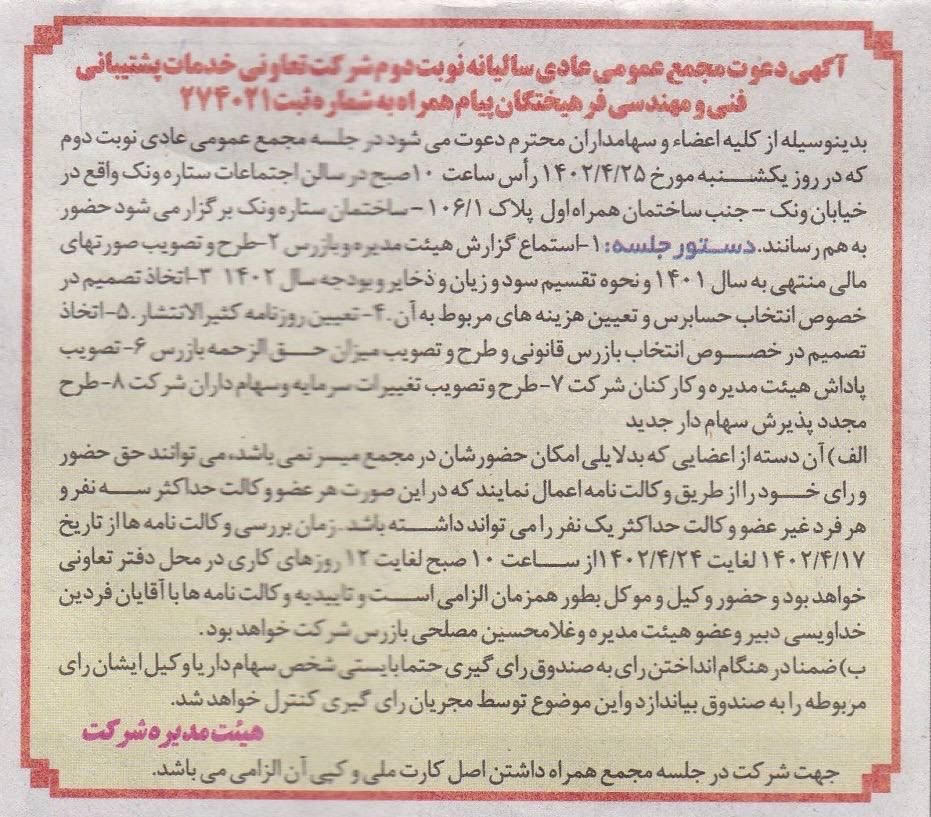 آگهی دعوت مجمع عمومی عادی سالیانه نوبت دوم شرکت تعاونی خدمات پشتیبانی
فنی و مهندسی فرهیختگان پیام همراه به شماره ثبت ۲۷۴۰۲۱
بدینوسیله از کلیه اعضاء و سهامداران محترم دعوت می شود در جلسه مجمع عمومی عادی نوبت دوم
که در روز یکشنبه مورخ ۱۴۰۲/۴/۲۵ رأس ساعت ۱۰ صبح در سالن اجتماعات ستاره ونک واقع در
خیابان ونک – جنب ساختمان همراه اول پلاک ۱۰۶/۱ – ساختمان ستاره ونک برگزار می شود حضور
به هم رسانند. دستور جلسه: ۱-استماع گزارش هیئت مدیره و بازرس ۲-طرح و تصویب صورتهای
مالی منتهی به سال ۱۴۰۱ و نحوه تقسیم سود و زیان و ذخایر و بودجه سال ۱۴۰۲ ۳-اتخاذ تصمیم در
خصوص انتخاب حسابرس و تعیین هزینه های مربوط به آن. ۴- تعیین روزنامه کثیرالانتشار. ۵-اتخاذ
تصمیم در خصوص انتخاب بازرس قانونی و طرح و تصویب میزان حق الزحمه بازرس ۶-تصویب
پاداش هیئت مدیره و کارکنان شرکت ۷-طرح و تصویب تغییرات سرمایه و سهام داران شرکت ۸-طرح
مجدد پذیرش سهام دار جدید
الف) آن دسته از اعضایی که بدلایلی امکان حضورشان در مجمع میسر نمی باشد، می توانند حق حضور
و رای خود را از طریق وکالت نامه اعمال نمایند که در این صورت هر عضو وکالت حداکثر سه نفر و
هر فرد غیر عضو وکالت حداکثر یک نفر را می تواند داشته باشد. زمان بررسی وکالت نامه ها از تاریخ
۱۴۰۲/۴/۱۷ لغایت ۱۴۰۲/۴/۲۴ از ساعت ۱۰ صبح لغایت ۱۲ روزهای کاری در محل دفتر تعاونی
خواهد بود و حضور وکیل و موکل بطور همزمان الزامی است و تاییدیه وکالت نامه ها با آقایان فردین
خداویسی دبیر وعضو هیئت مدیره وغلامحسین مصلحی بازرس شرکت خواهد بود.
ب) ضمنا در هنگام انداختن رای به صندوق رای گیری حتما بایستی شخص سهام دار یا وکیل ایشان رای
مربوطه را به صندوق بیاندازد واین موضوع توسط مجریان رای گیری کنترل خواهد شد.
هیئت مدیره شرکت
جهت شرکت در جلسه مجمع همراه داشتن اصل کارت ملی و کپی آن الزامی می باشد.